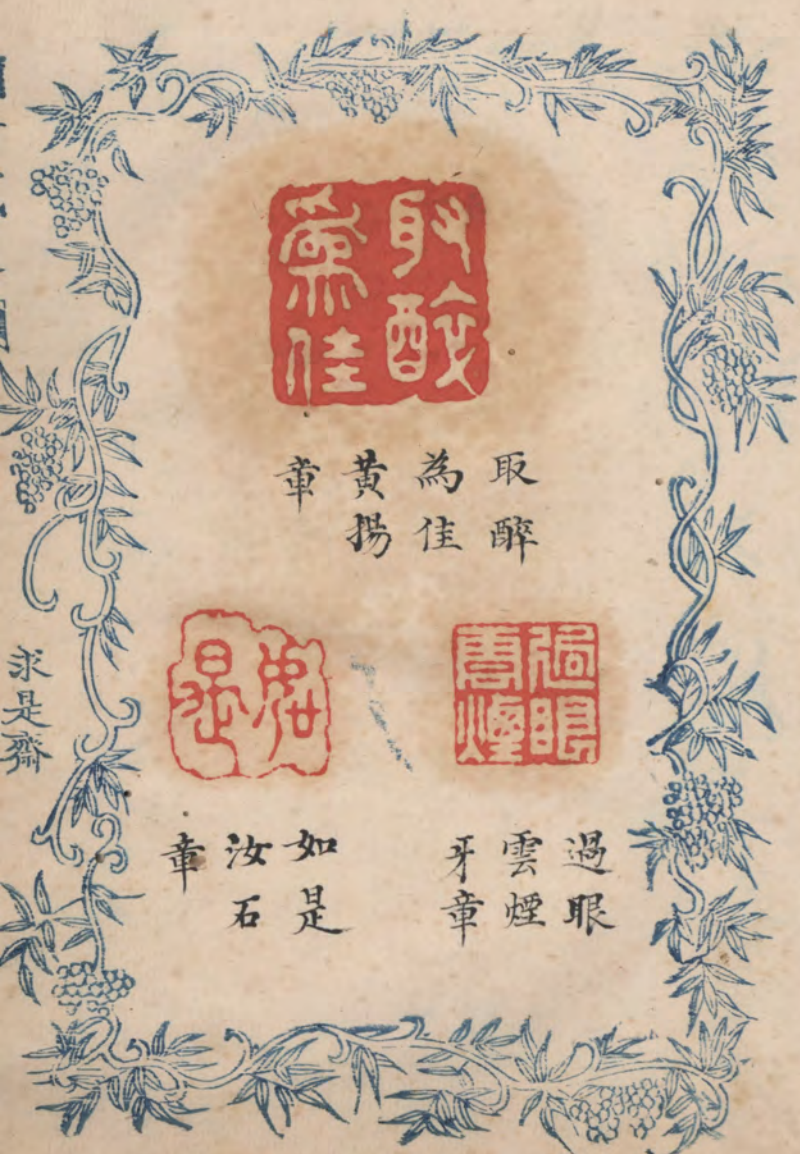 取醉
為佳
取醉
為佳
黃揚
章
過眼
雲煙
過眼
雲煙
牙章
如
是
如是
汝石
章
求是齋